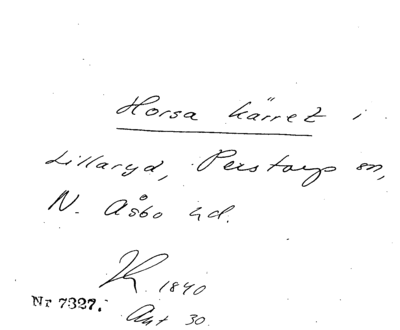 Horsa kärret i
Lillaryd, Perstorp sn,
N. Åsbo hd.
1840
Nr 7327. Akt 30.